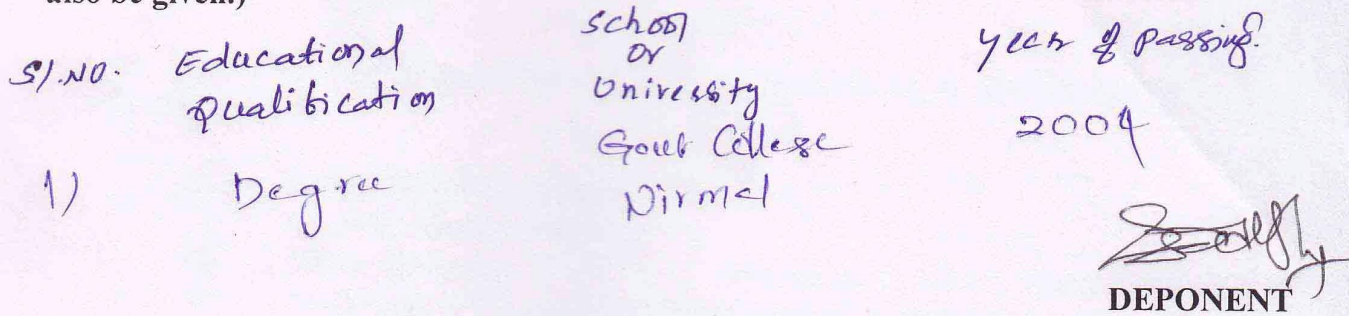 also be given.)
Sl.NO. Educational Qualification School or University year of passing.
1) Degree Govt College Nirmal 2004
DEPONENT